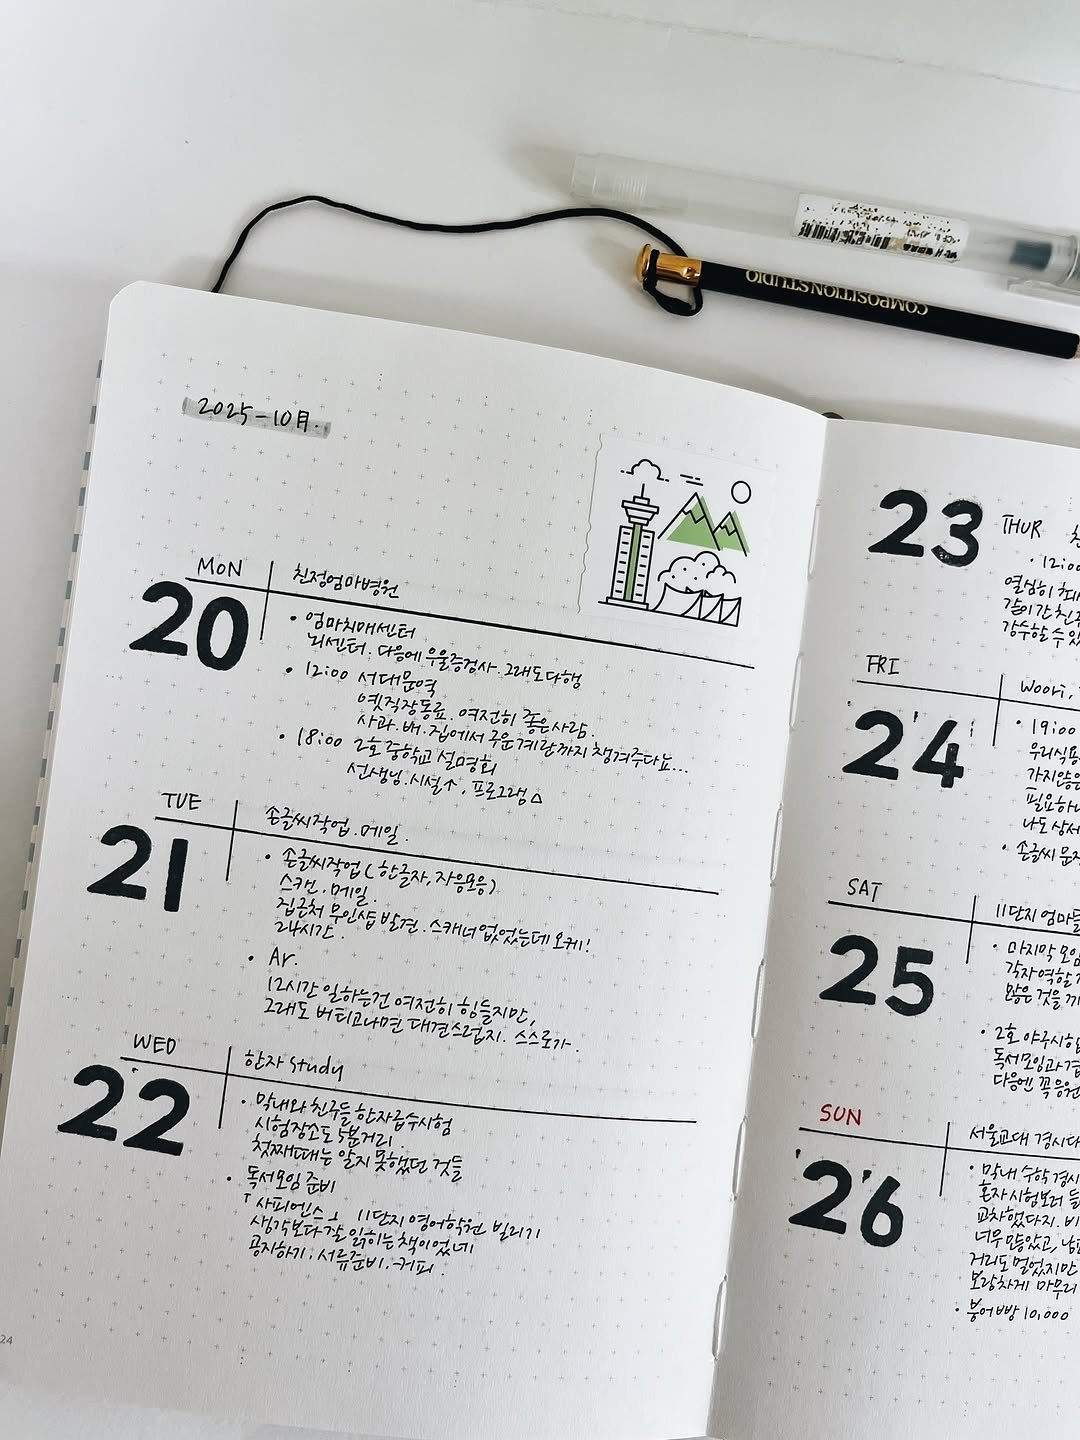 COMPOSITION STUDIO
2025-10月.
MON
20
친정엄마병원
• 엄마치매센터
뇌센터. 다음에 우울증검사. 그래도 다행
• 12:00 서대문역
옛직장동료. 여전히 좋은사람.
사과. 배. 집에서 구운계란까지 챙겨주다뇨...
• 18:00 2호 중학교 설명회
선생님.시설↑, 프로그램△
TUE
21
손글씨작업. 메일.
• 손글씨작업 (한글자, 자음모음)
스캔. 메일.
집근처 무인샵 발견. 스캐너 없었는데 오케!
24시간.
• Ar.
12시간 일하는건 여전히 힘들지만,
그래도 버티고나면 대견스럽지. 스스로가.
WED
22
한자 study
• 막내와 친구들 한자급수시험
시험장소도 5분거리.
첫째때는 알지 못했던 것들
• 독서모임 준비
「사피엔스」 11단지 영어학원 빌리기
생각보다 잘 읽히는 책이었네
공지하기, 서류준비. 커피.
24
23
THUR
• 12:00
열심히
같이간 친구
감수할 수 있
FRI
24
woori,
• 19:00
가지않은
필요하
나도 상세
• 손글씨
SAT
25
11단지 엄마들
• 마지막 모임
각자 역할
많은 것을
• 2호 야구시합
독서모임과
다음엔 꼭 응원
SUN
26
서울교대 경시대
• 막내 수학 경시
혼자 시험보러 들
교차했다지.
너무 많았고,
거리도 멀었지만
보람차게 마무리
• 붕어빵 10,000